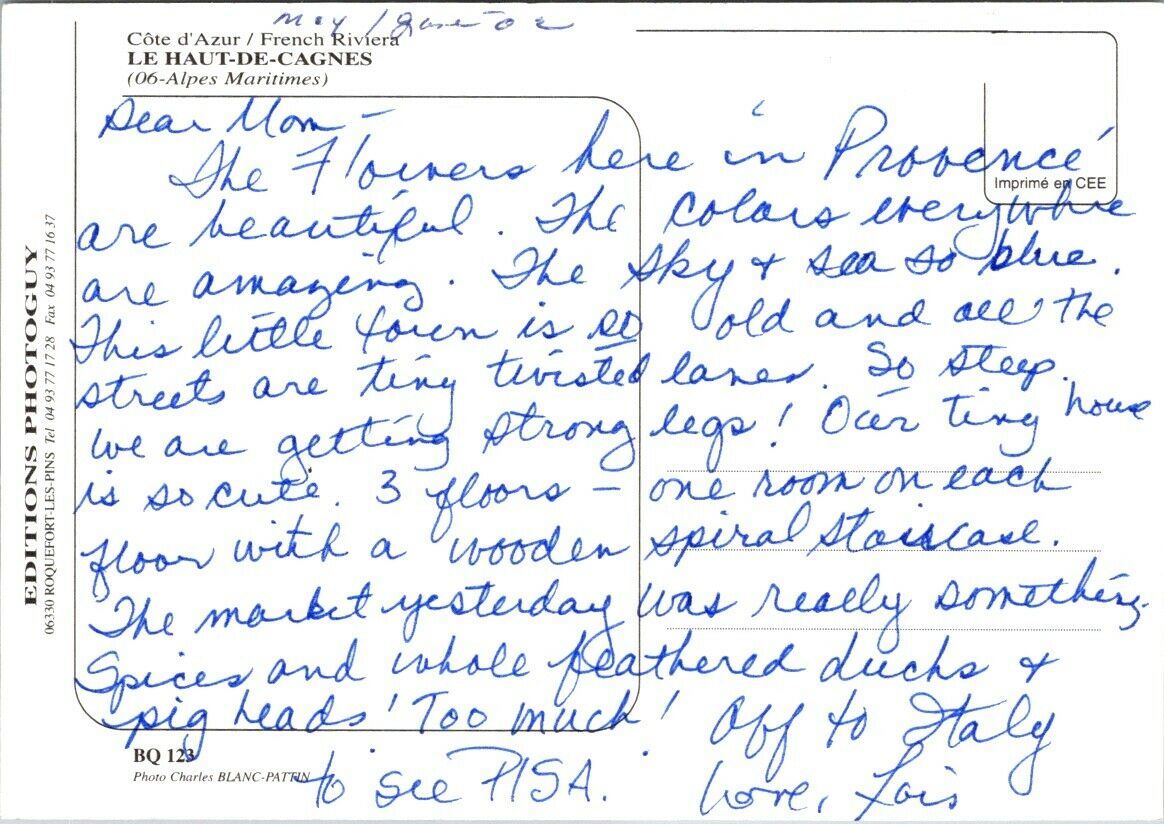 May/June 02
Côte d'Azur / French Riviera
LE HAUT-DE-CAGNES
(06-Alpes Maritimes)
Imprimé en CEE
EDITIONS PHOTOGUY
06330 ROQUEFORT-LES-PINS Tel 04 93 77 17 28 Fax 04 93 77 16 37
Dear Mom -
The Flowers here in Provence
are beautiful. The colors everywhere
are amazing. The sky + sea so blue.
This little town is so old and all the
streets are tiny twisted lanes. So steep.
we are getting strong legs! Our tiny house
is so cute. 3 floors - one room on each
floor with a wooden spiral staiscase.
The market yesterday was really something.
Spices and whole feathered ducks +
pig heads! Too much! Off to Italy
to see PISA. Love, Lois
BQ 123
Photo Charles BLANC-PATTIN